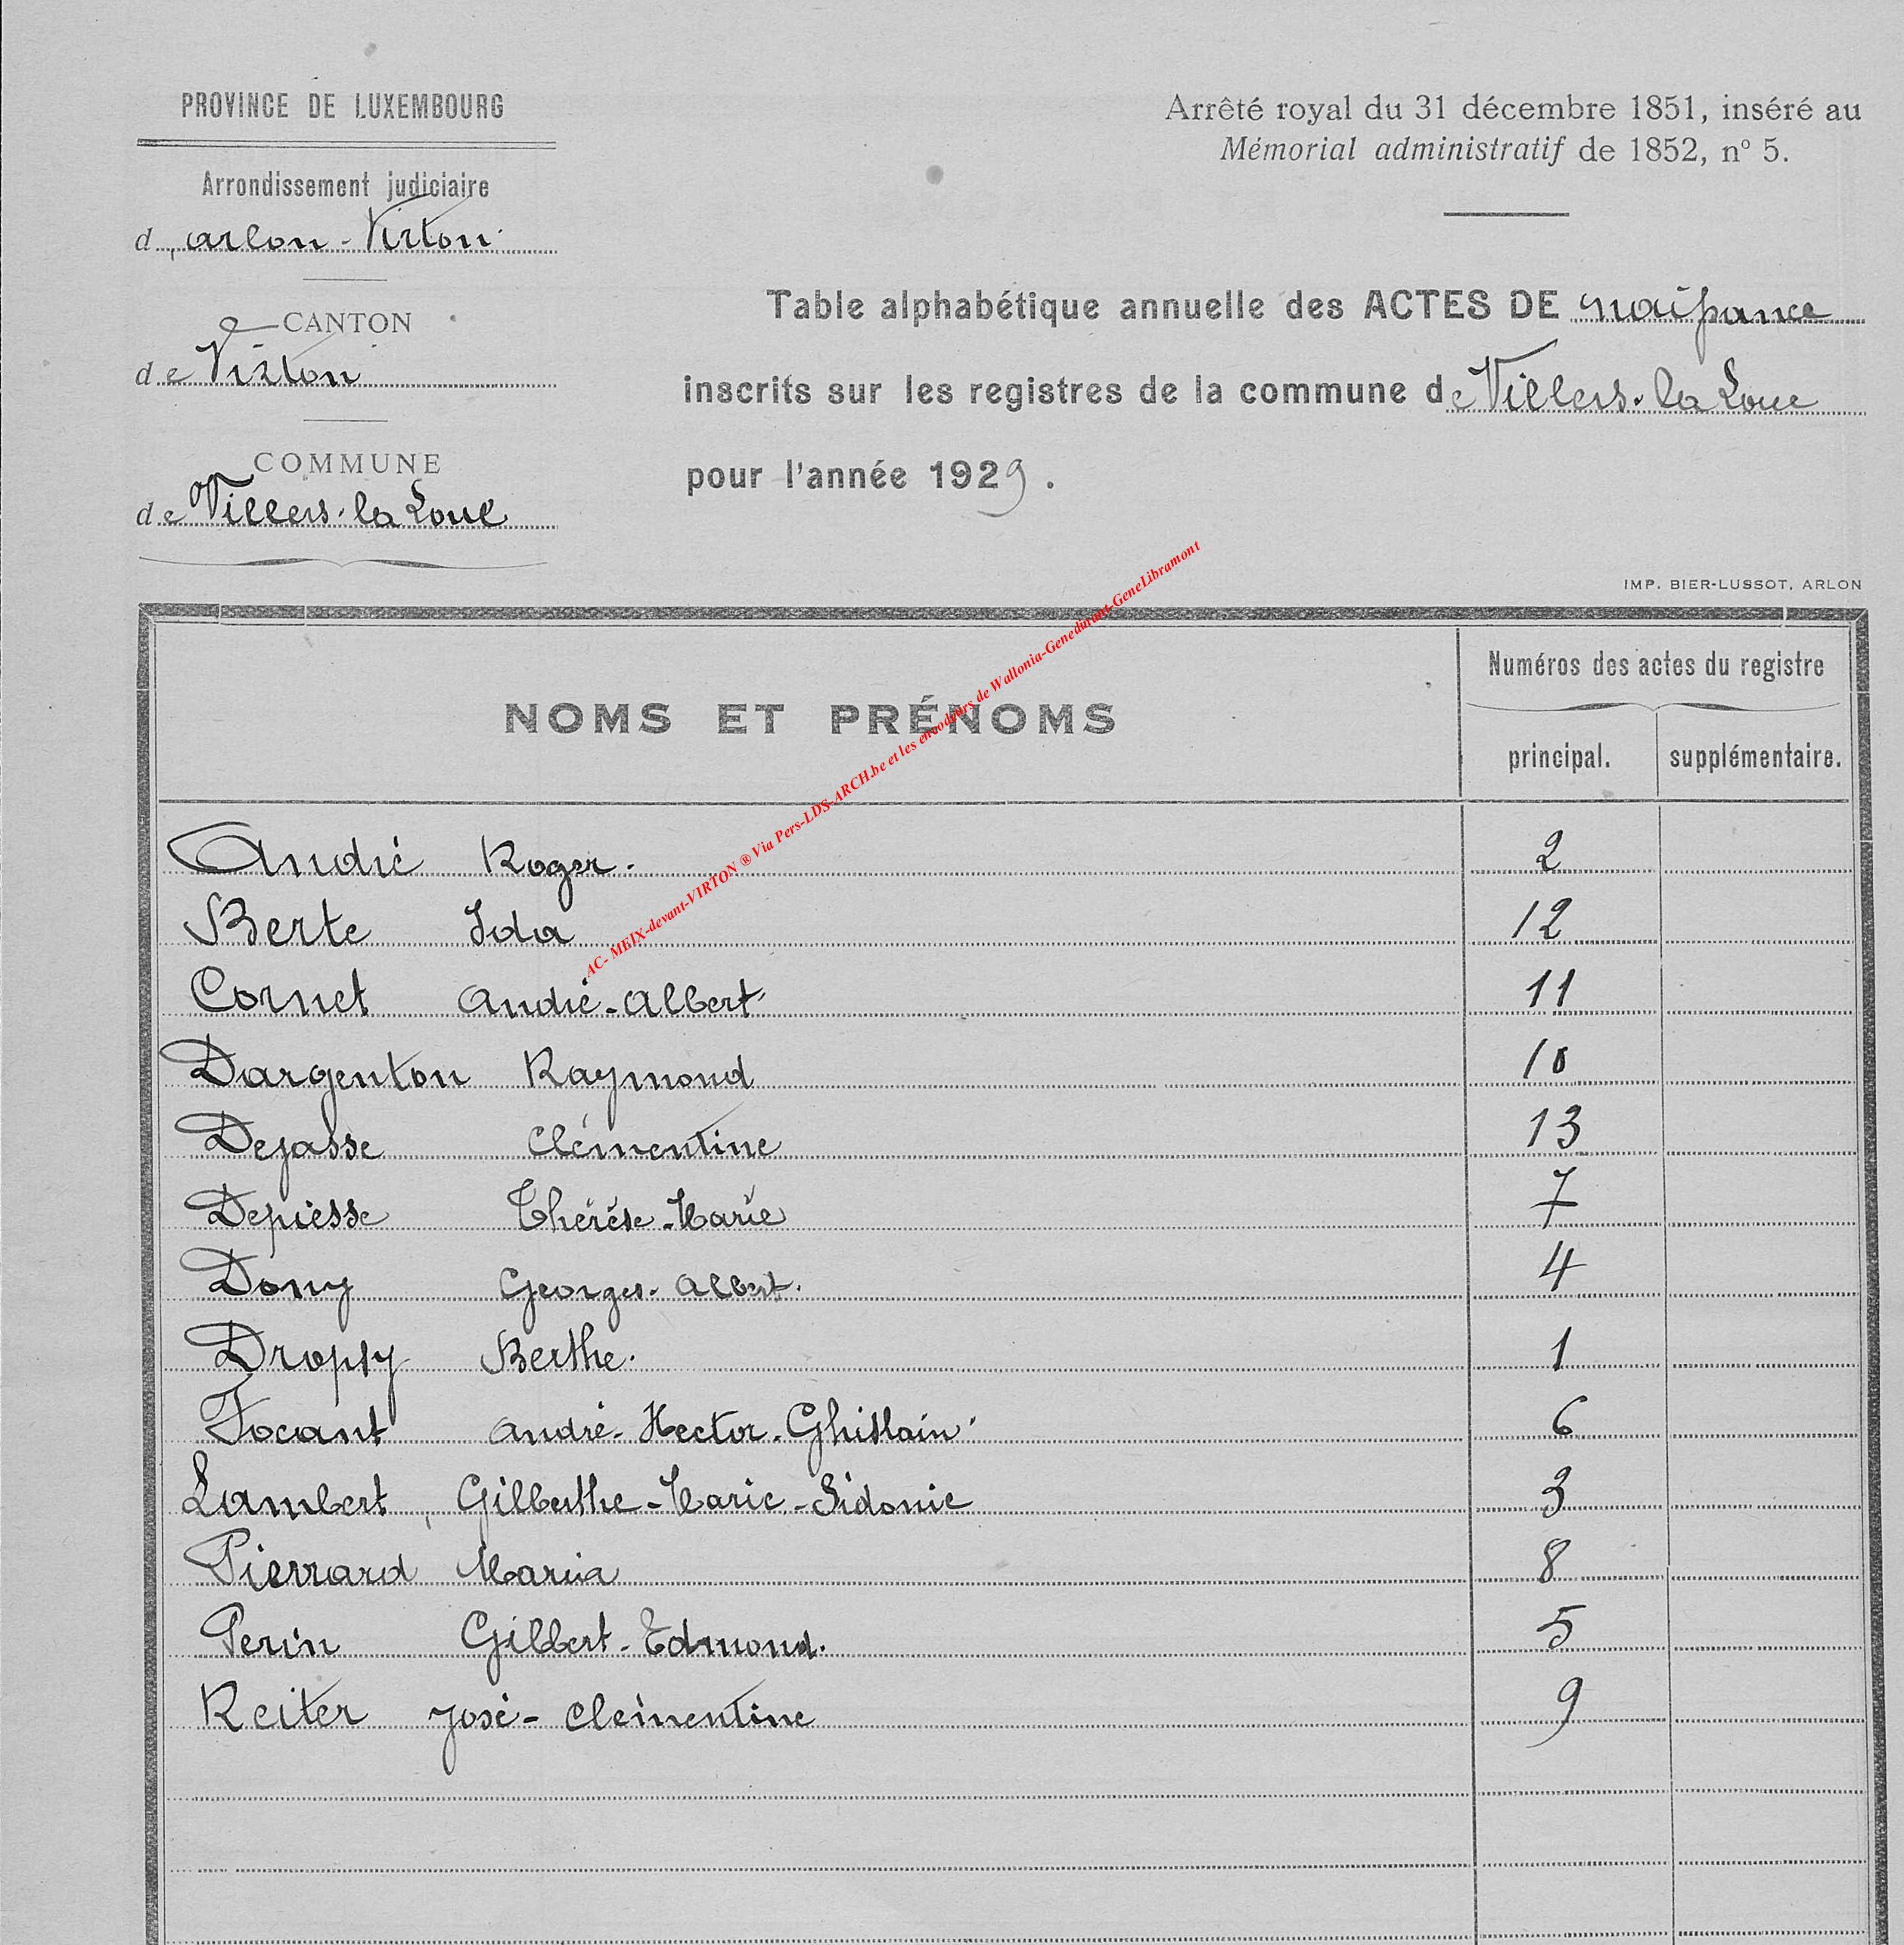 PROVINCE DE LUXEMBOURG
Arrondissement judiciaire
d'arlon-Virton
CANTON
de Virton
COMMUNE
de Villers-la Loue
Arrêté royal du 31 décembre 1851, inséré au
Mémorial administratif de 1852, n° 5.
Table alphabétique annuelle des ACTES DE naissance
inscrits sur les registres de la commune de Villers-la Loue
pour l'année 1929.
IMP. BIER-LUSSOT, ARLON
NOMS ET PRÉNOMS
Numéros des actes du registre
principal. supplémentaire.
AC- MEIX-devant-VIRTON ® Via Pers-LDS-ARCH.be et les encodeurs de Wallonia-Genedinant-GeneLibramont
André Roger. 2
Berte Ida 12
Cornet André-Albert 11
Dargenton Raymond 10
Dejasse Clémentine 13
Depiesse Thérèse-Marie 7
Dony Georges-Albert. 4
Dropsy Berthe. 1
Focant André-Hector-Ghislain 6
Lambert, Gilberthe-Marie-Sidonie 3
Pierrard Maria 8
Perin Gilbert-Edmond. 5
Reiter José-Clémentine 9